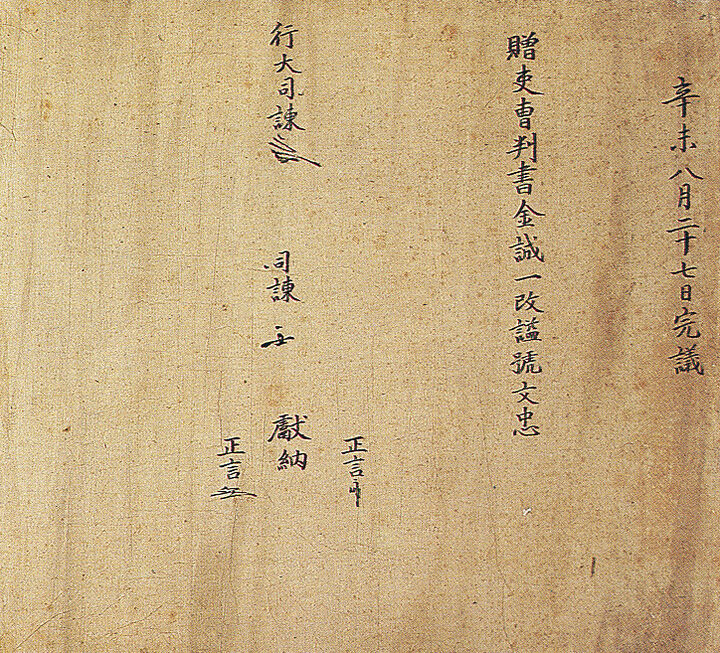 辛未八月二十七日完議
贈吏曹判書金誠一改謚號文忠
正言
行大司諫
司諫
獻納
正言